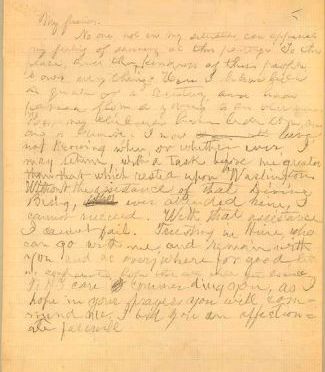 My friends.
No one not in my situation can appreciate
my feeling of sadness at this parting. To this
place, and the kindness of these people
I owe every thing. Here I have lived
a quarter of a century and have
passed from a young to an old man.
Here my children have been born, and
one is buried. I now leave,
not knowing when or whether ever I
may return, with a task before me greater
than that which rested upon Washington.
Without the assistance of that Divine
Being, who ever attended him, I
cannot succeed. With that assistance
I cannot fail. Trusting in Him, who
can go with me, and remain with
you and be every where for good let
us confidently hope that all will yet be well
To His care commending you, as I
hope in your prayers you will com-
mend me, I bid you an affection-
ate farewell